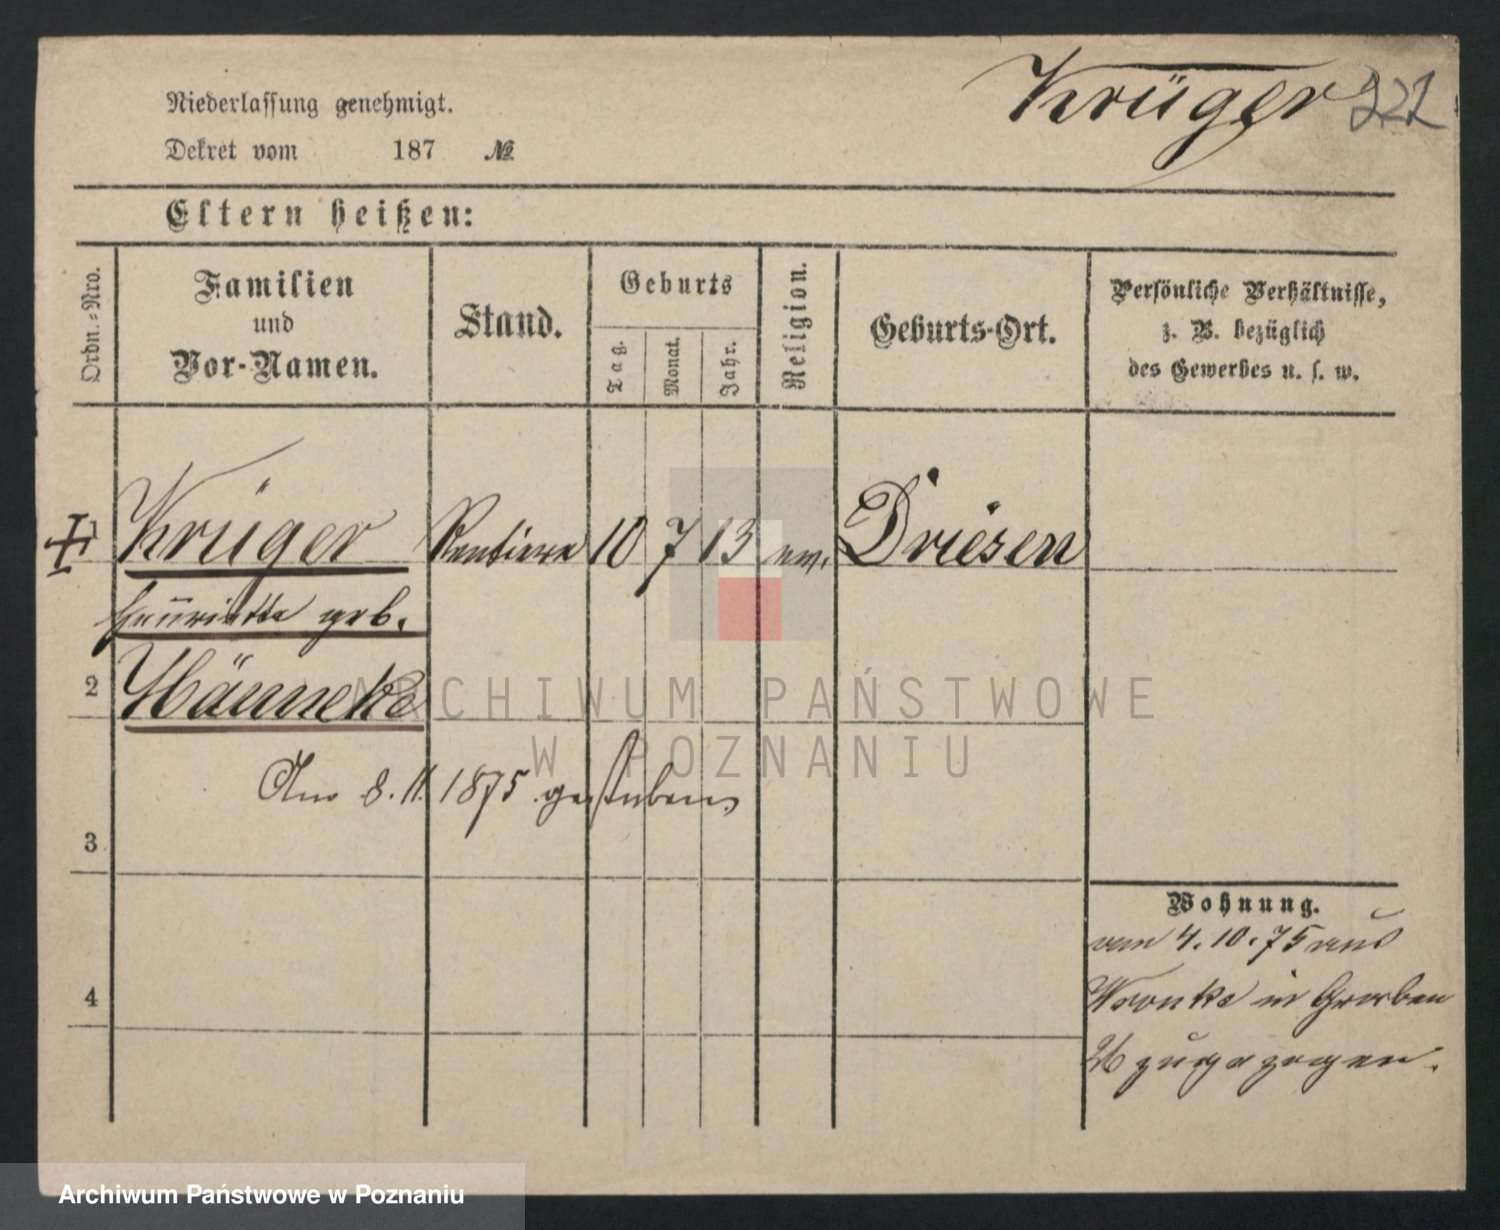 Krüger 221
Niederlassung genehmigt.
Dekret vom 187 №
Eltern heißen:
Ordn.=Nro.
Familien
und
Vor-Namen.
Stand.
Geburts
Tag.
Monat.
Jahr.
Religion.
Geburts-Ort.
Persönliche Verhältnisse,
z. B. bezüglich
des Gewerbes u. s. w.
1 Krüger Rentiere 10 7 13 ev. Driesen
Henriette geb.
2 Hänneke
Am 8. 11. 1875 gestorben
3
4
Wohnung.
am 4. 10. 75 aus
Wronke in Graben
26 zugezogen.
ARCHIWUM PAŃSTWOWE
W POZNANIU
Archiwum Państwowe w Poznaniu